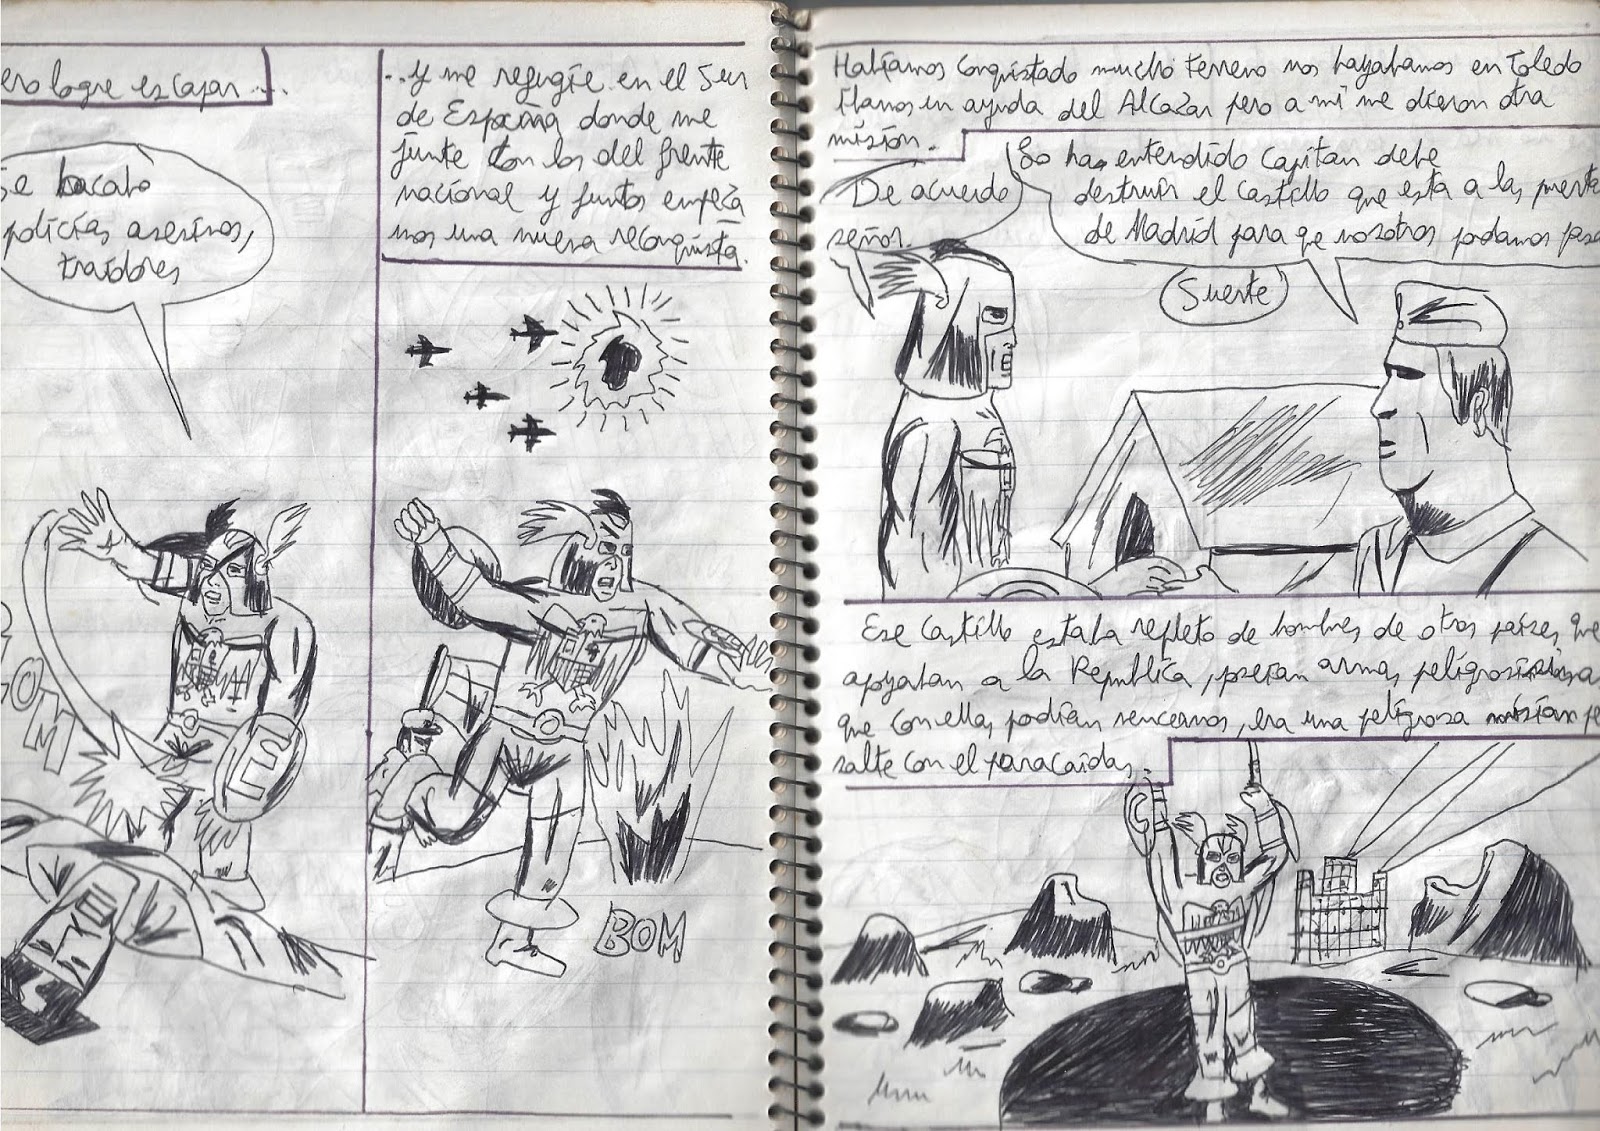 ero logre escapar...
Se hacabo
policías asesinos,
traidores
BOM
...y me refugie en el Sur
de España donde me
junte con los del frente
nacional y juntos empeza
mos una nueva reconquista.
BOM
Habíamos conquistado mucho terreno nos hayabamos en Toledo
íbamos en ayuda del Alcazar pero a mi me dieron otra
mision.
De acuerdo
señor.
Lo has entendido Capitan debe
destruir el castillo que esta a las puerta
de Madrid para que nosotros podamos pasa
Suerte
Ese Castillo estaba repleto de hombres de otros paises que
apoyaban a la Republica, poseian armas peligrosisimas
que con ellas podian vencernos, era una peligrosa mision pe
salte con el paracaidas.